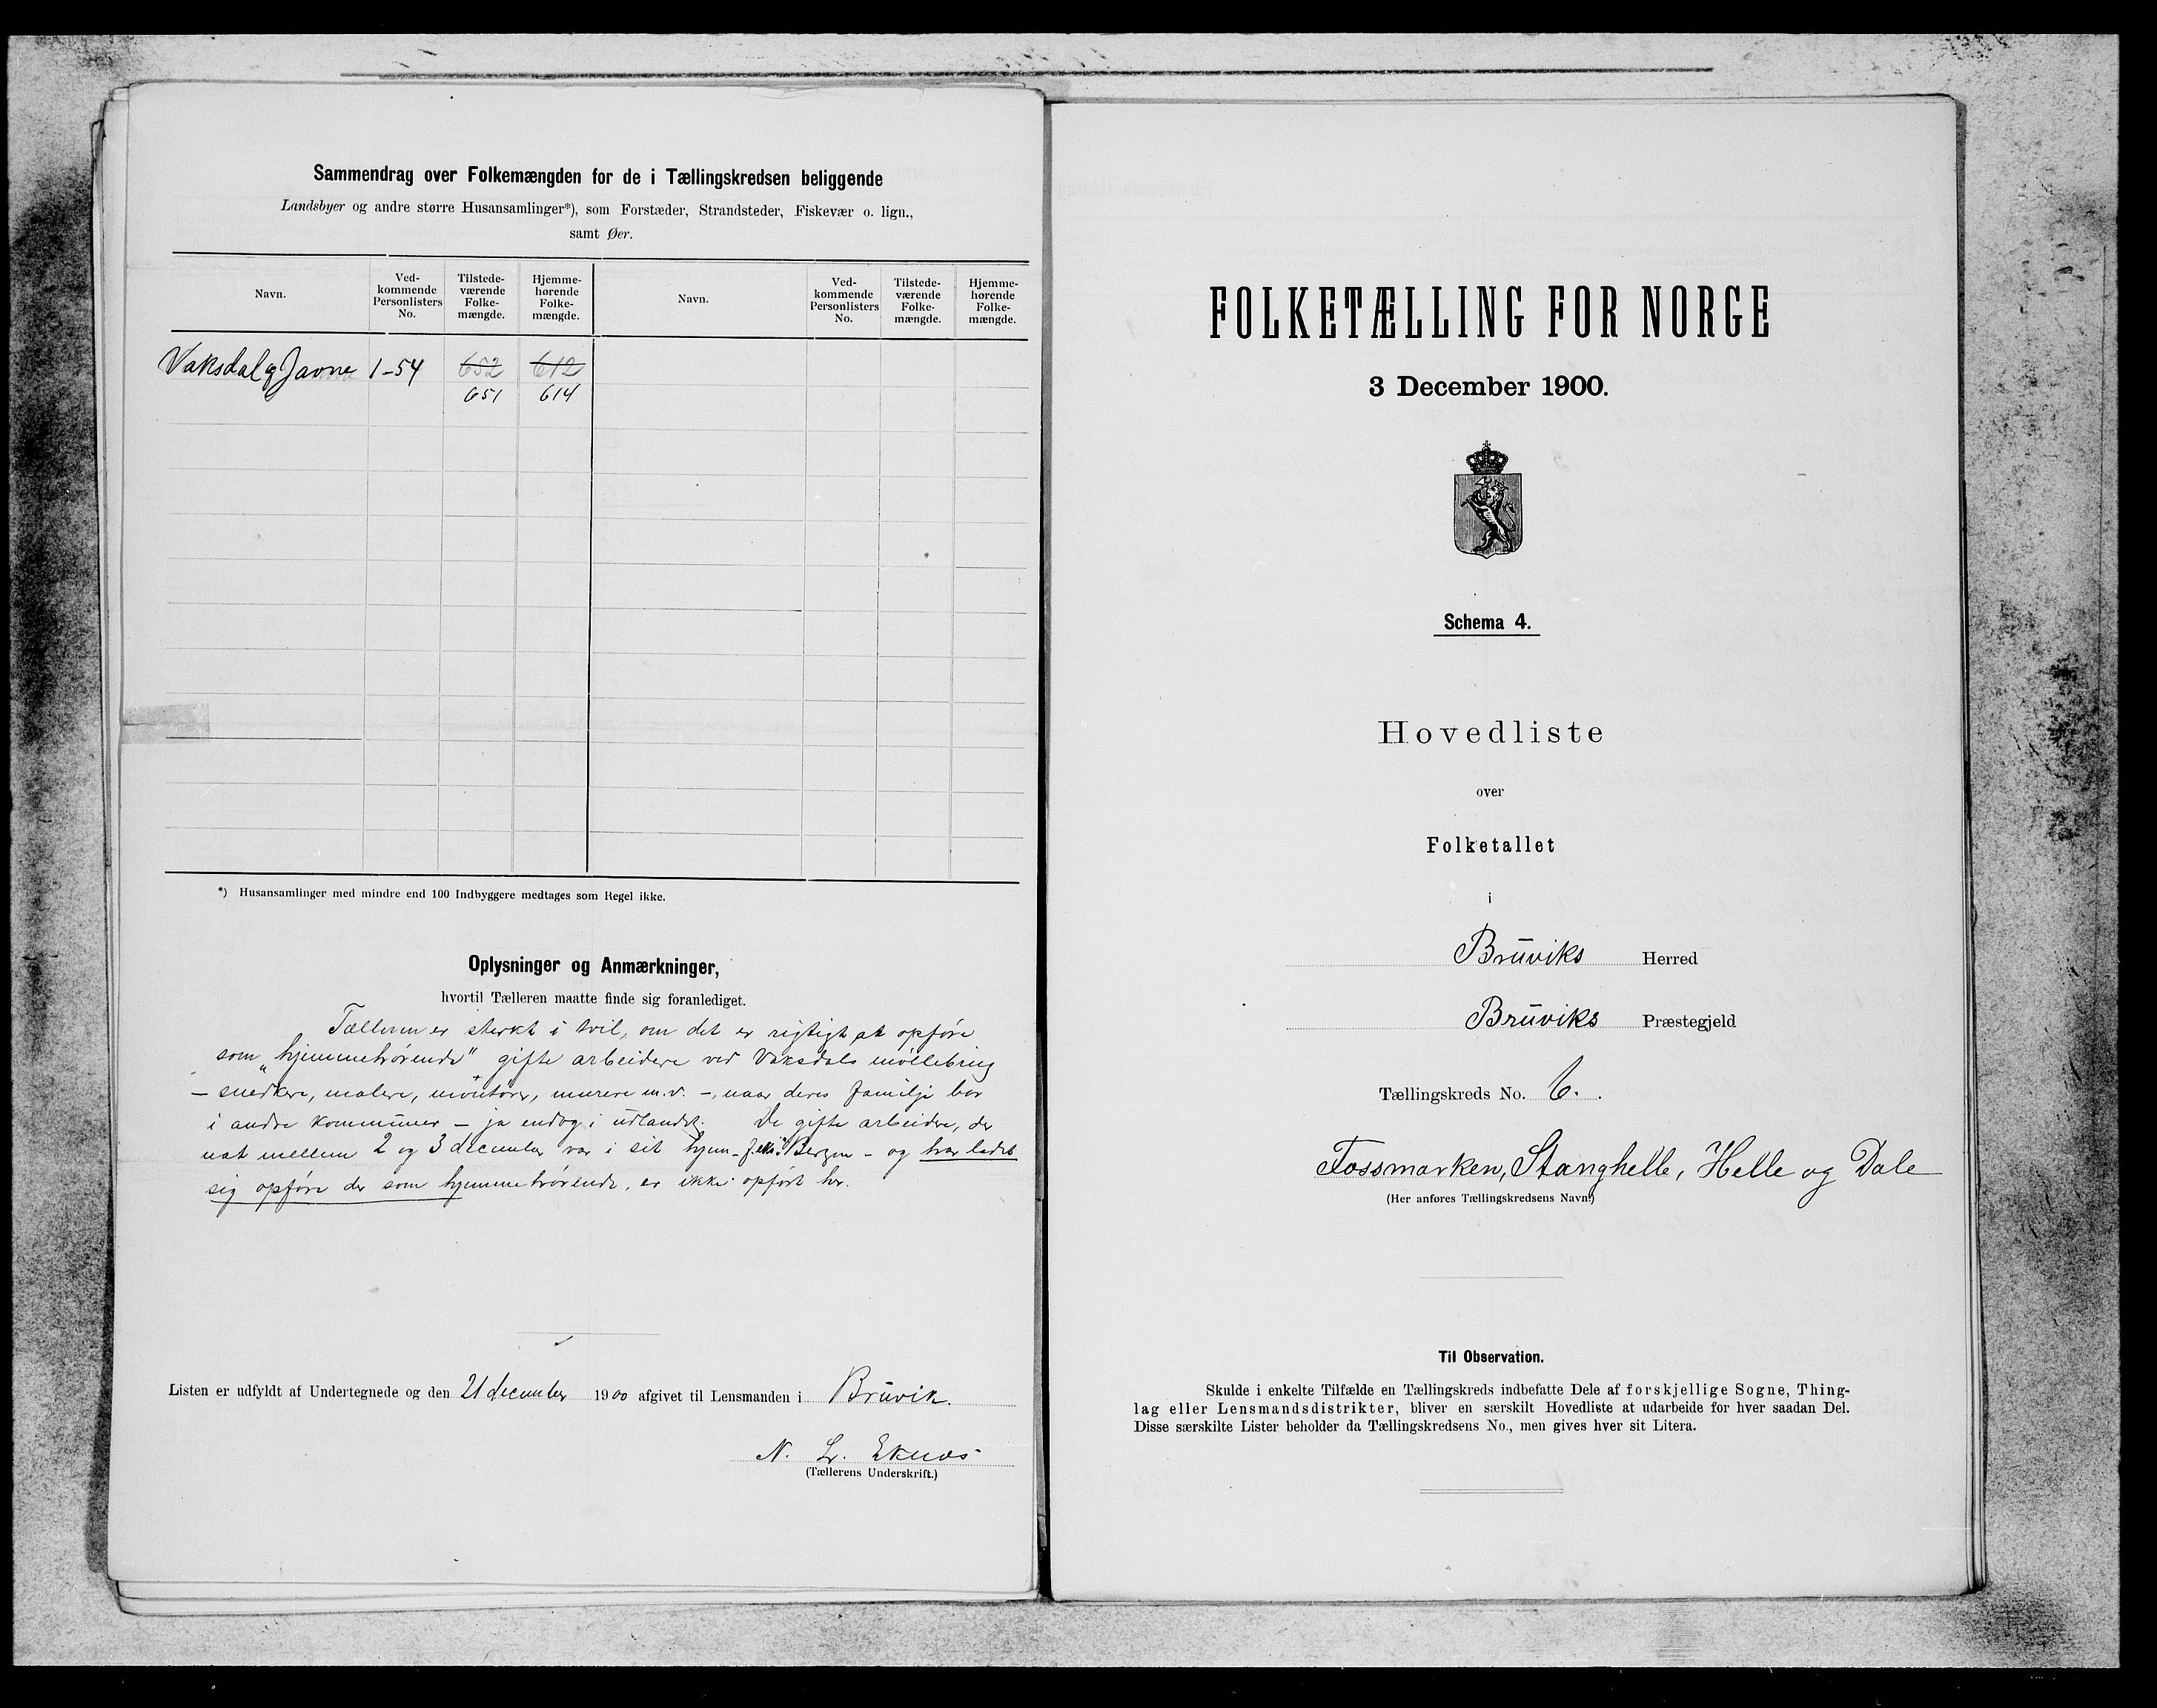 Sammendrag over Folkemængden for de i Tællingskredsen beliggende
Landsbyer og andre større Husansamlinger*), som Forstæder, Strandsteder, Fiskevær o. lign.,
samt Øer.
Navn. Ved-kommende Personlisters No. Tilstede-værende Folke-mængde. Hjemme-hørende Folke-mængde. Navn. Ved-kommende Personlisters No. Tilstede-værende Folke-mængde. Hjemme-hørende Folke-mængde.
Vaksdal og Javne 1-54 652 612
651 614
*) Husansamlinger med mindre end 100 Indbyggere medtages som Regel ikke.
Oplysninger og Anmærkninger,
hvortil Tælleren maatte finde sig foranlediget.
Tælleren er sterkt i tvil, om det er rigtigt at opføre
som "hjemmehørende" gifte arbeidere ved Vaksdals møllebrug
— snedkere, malere, montører, murere m.v. —, naar deres familje bor
i andre kommuner — ja endog i udlandet. De gifte arbeidere, der
nat mellem 2 og 3 december var i sit hjem - f.eks. i Bergen - og har ladet
sig opføre der som hjemmehørende, er ikke opført her.
Listen er udfyldt af Undertegnede og den 21 december 1900 afgivet til Lensmanden i Bruvik.
N. L. Eknæs
(Tællerens Underskrift.)
FOLKETÆLLING FOR NORGE
3 December 1900.
Schema 4.
Hovedliste
over
Folketallet
i
Bruviks Herred
Bruviks Præstegjeld
Tællingskreds No. 6.
Fossmarken, Stanghelle, Helle og Dale
(Her anføres Tællingskredsens Navn.)
Til Observation.
Skulde i enkelte Tilfælde en Tællingskreds indbefatte Dele af forskjellige Sogne, Thing-
lag eller Lensmandsdistrikter, bliver en særskilt Hovedliste at udarbeide for hver saadan Del.
Disse særskilte Lister beholder da Tællingskredsens No., men gives hver sit Litera.